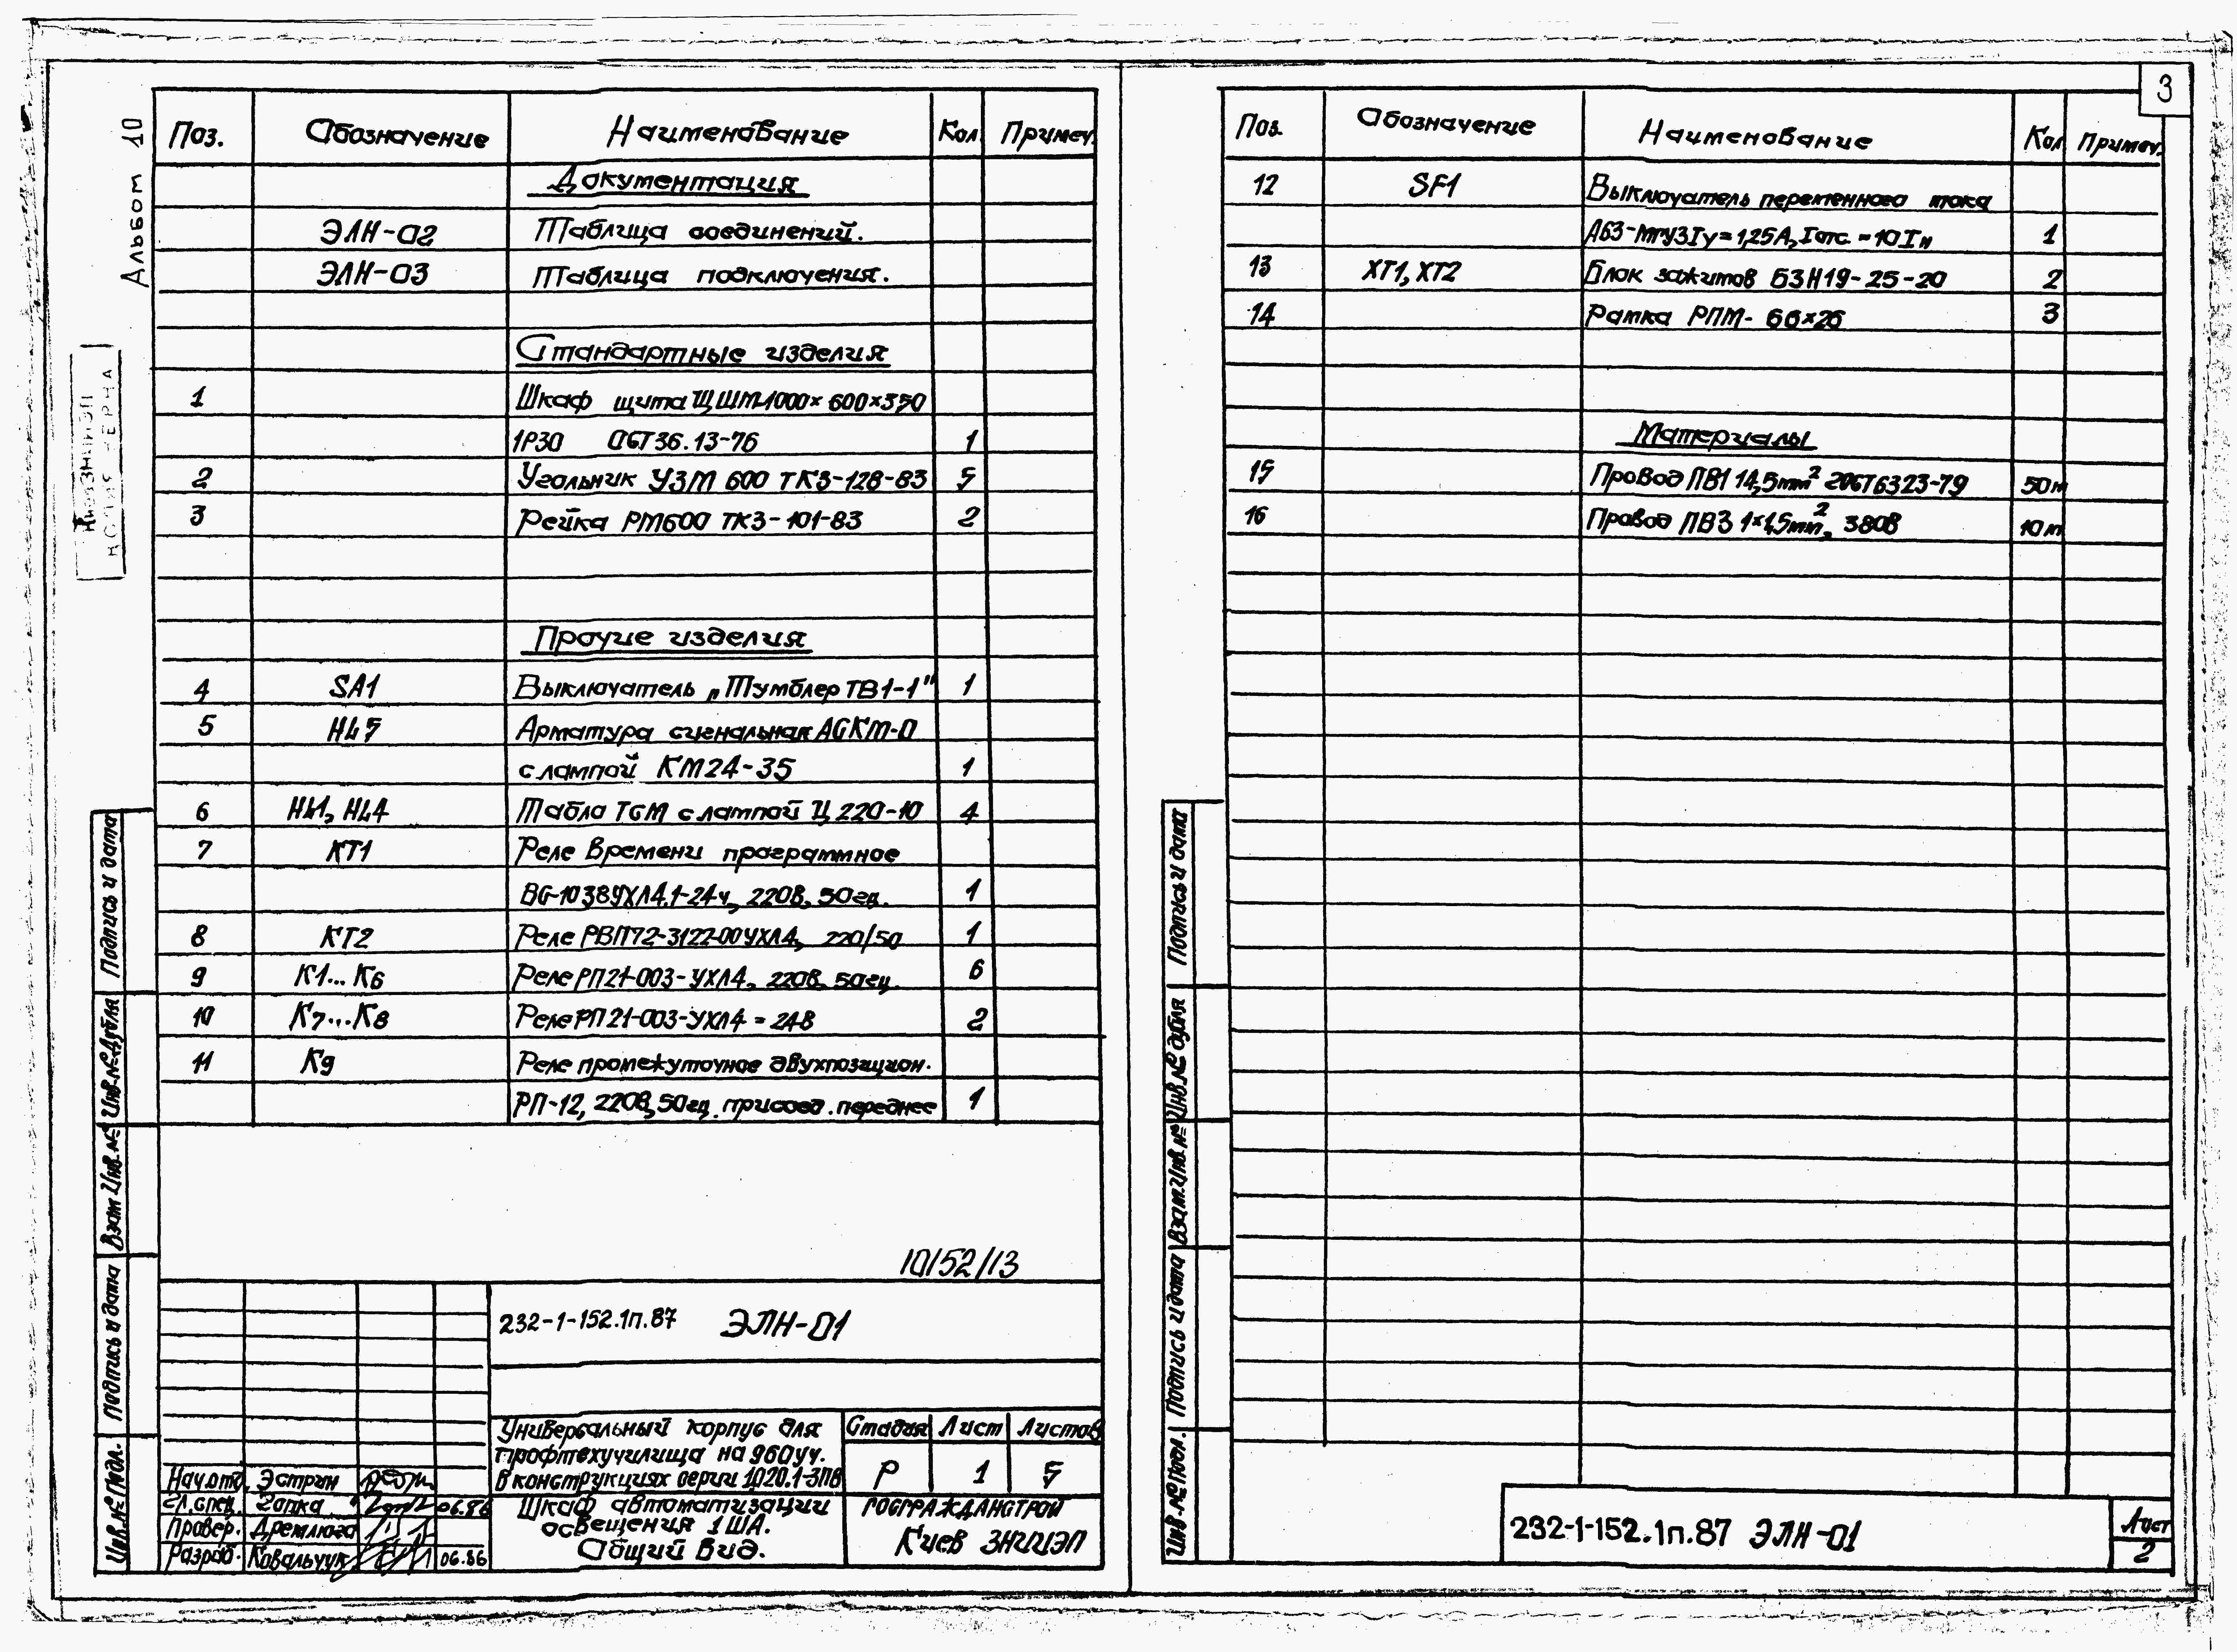 3
Альбом 10
Поз. Обозначение Наименование Кол. Примеч.
Документация
ЭЛН-02 Таблица соединений.
ЭЛН-03 Таблица подключения.
Стандартные изделия
1 Шкаф щита ЩШМ-1000×600×350
1Р30 ОСТ36.13-76 1
2 Угольник УЗМ 600 ТК3-128-83 5
3 Рейка РМ600 ТК3-101-83 2
Прочие изделия
4 SA1 Выключатель „Тумблер ТВ1-1" 1
5 HL5 Арматура сигнальная АСКМ-0
с лампой КМ24-35 1
6 HL1, HL4 Табло ТСМ с лампой Ц 220-10 4
7 КТ1 Реле времени программное
ВС-10 38УХЛ4.1-24ч, 220В, 50гц. 1
8 КТ2 Реле РВП72-3122-00УХЛ4, 220/50 1
9 К1...К6 Реле РП21-003-УХЛ4, 220В, 50гц. 6
10 К7...К8 Реле РП21-003-УХЛ4 = 24В 2
11 К9 Реле промежуточное двухпозицион.
РП-12, 220В, 50гц. присоед. переднее 1
10152/13
232-1-152.1п.87 ЭЛН-01
Универсальный корпус для
профтехучилища на 960 уч.
в конструкциях серии 1.020.1-3пв
Стадия Лист Листов
Р 1 5
Шкаф автоматизации
освещения 1ША.
Общий вид.
ГОСГРАЖДАНСТРОЙ
Киев ЗНИИЭП
Нач.отд. Эстрин
Гл.спец. 06.86
Провер. Дремлюга
Разраб. Ковальчук 06.86
Подпись и дата
Инв.№ дубля
Взам Инв.№
Подпись и дата
Инв.№ подл.
Поз. Обозначение Наименование Кол Примеч.
12 SF1 Выключатель переменного тока
А63-МгУ3 Iу=1,25А, Iотс.=10Iн 1
13 ХТ1, ХТ2 Блок зажимов БЗН19-25-20 2
14 Рамка РПМ- 66×26 3
Материалы
15 Провод ПВ1 1×1,5мм² ГОСТ6323-79 50м
16 Провод ПВ3 1×1,5мм², 380В 10м
Подпись и дата
Инв.№ дубля
Взам.Инв.№
Подпись и дата
Инв.№ подл.
232-1-152.1п.87 ЭЛН-01
Лист
2